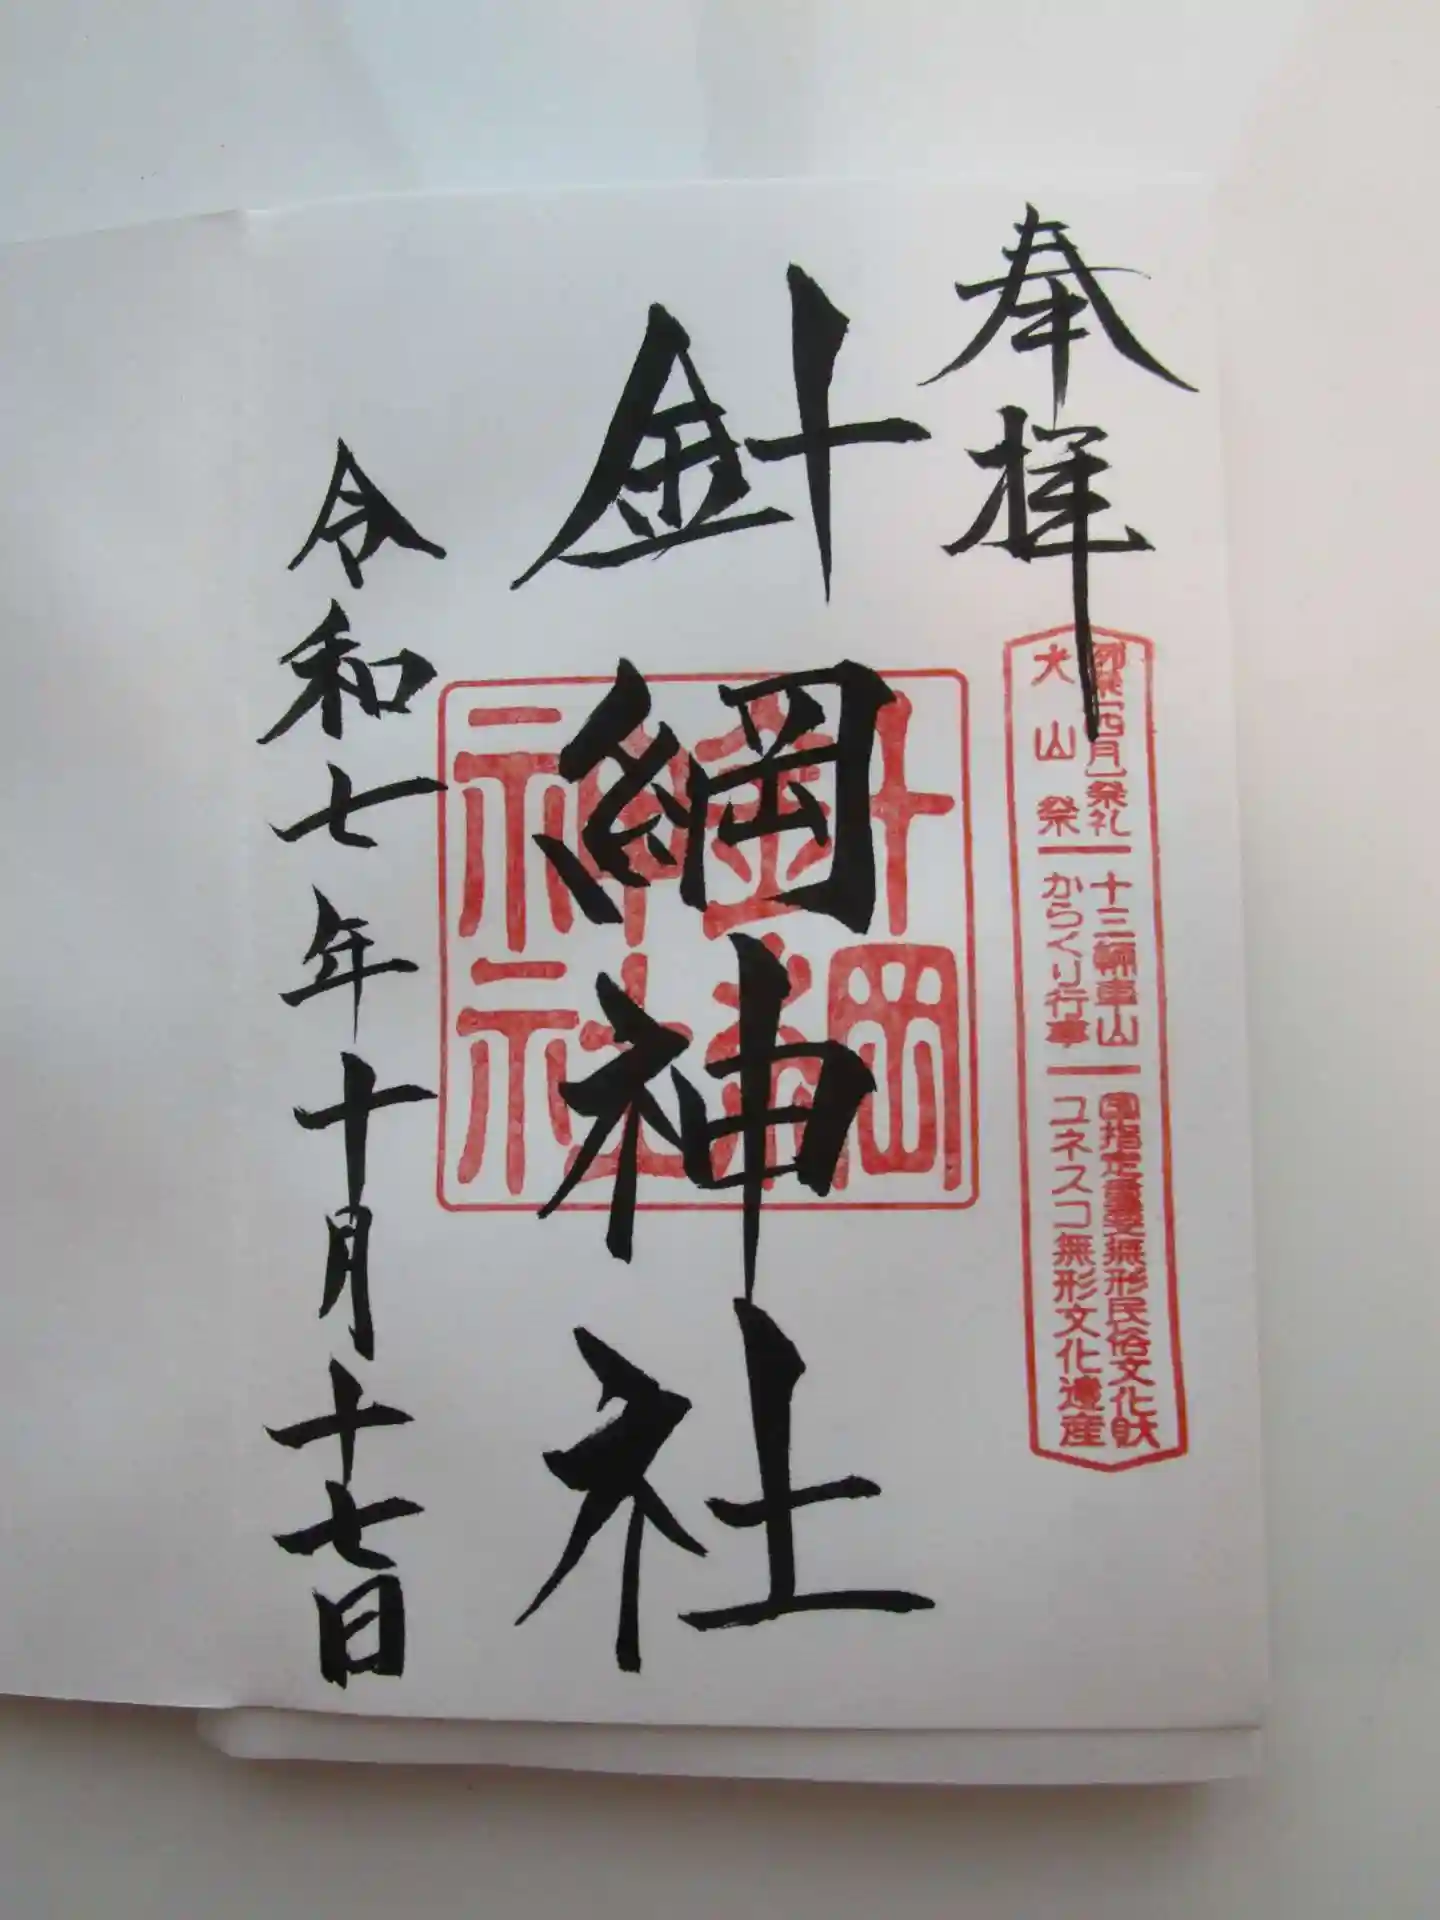 奉拝
例祭(四月)祭礼 十三輛車山 國指定重要無形民俗文化財
犬山祭 からくり行事 ユネスコ無形文化遺産
針綱神社
針綱
神社
令和七年十月十七日